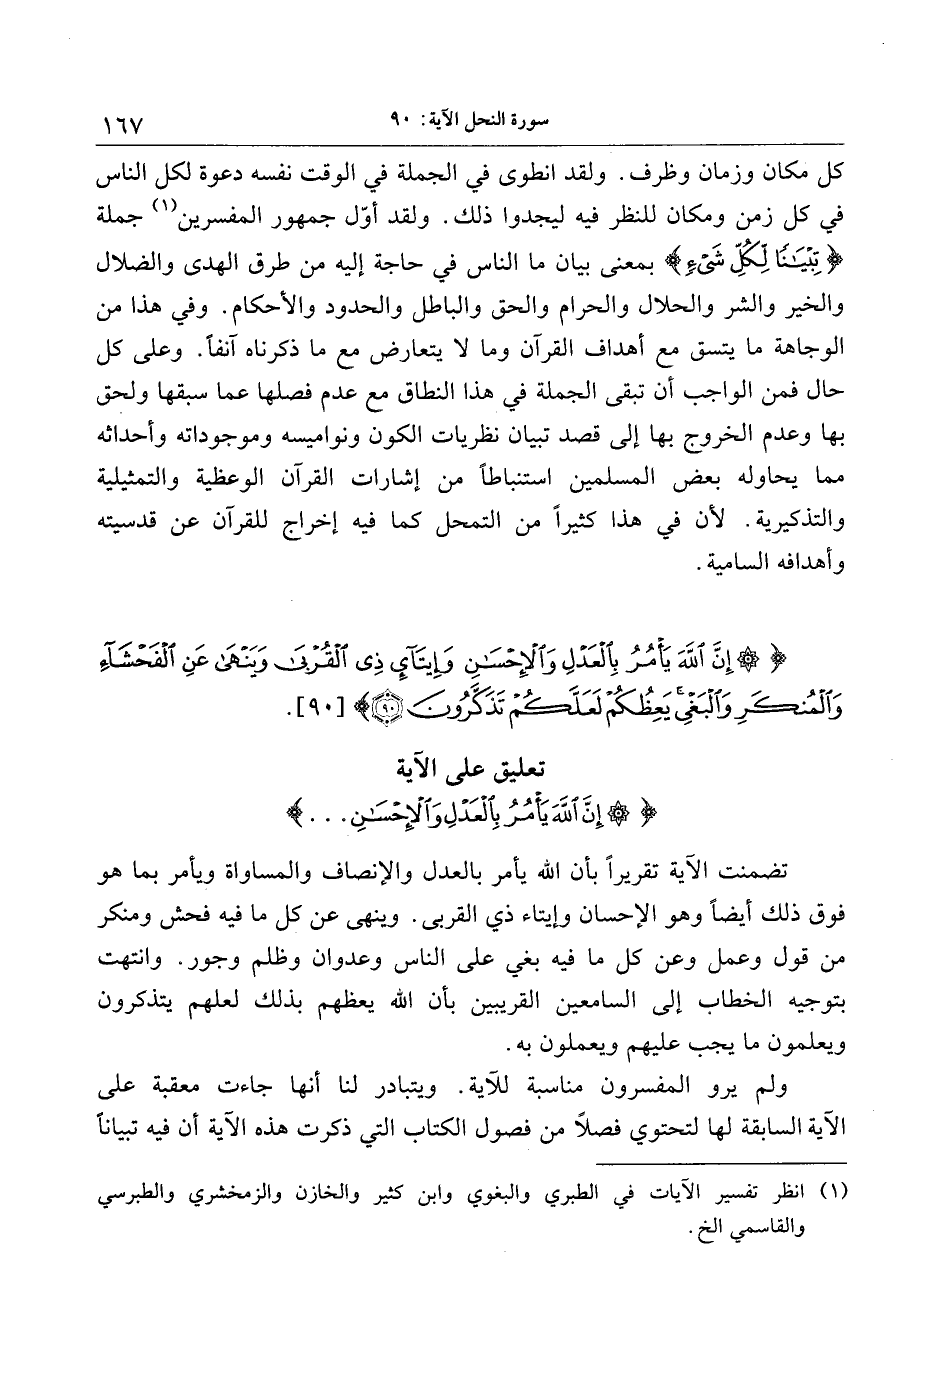 سورة النحل الآية: ٩٠ ١٦٧
كل مكان وزمان وظرف. ولقد انطوى في الجملة في الوقت نفسه دعوة لكل الناس
في كل زمن ومكان للنظر فيه ليجدوا ذلك. ولقد أوّل جمهور المفسرين(١) جملة
﴿تِبْيَٰنًا لِّكُلِّ شَىْءٍ﴾ بمعنى بيان ما الناس في حاجة إليه من طرق الهدى والضلال
والخير والشر والحلال والحرام والحق والباطل والحدود والأحكام. وفي هذا من
الوجاهة ما يتسق مع أهداف القرآن وما لا يتعارض مع ما ذكرناه آنفاً. وعلى كل
حال فمن الواجب أن تبقى الجملة في هذا النطاق مع عدم فصلها عما سبقها ولحق
بها وعدم الخروج بها إلى قصد تبيان نظريات الكون ونواميسه وموجوداته وأحداثه
مما يحاوله بعض المسلمين استنباطاً من إشارات القرآن الوعظية والتمثيلية
والتذكيرية. لأن في هذا كثيراً من التمحل كما فيه إخراج للقرآن عن قدسيته
وأهدافه السامية.
﴿ ۞ إِنَّ ٱللَّهَ يَأْمُرُ بِٱلْعَدْلِ وَٱلْإِحْسَٰنِ وَإِيتَآئِ ذِى ٱلْقُرْبَىٰ وَيَنْهَىٰ عَنِ ٱلْفَحْشَآءِ
وَٱلْمُنكَرِ وَٱلْبَغْىِ ۚ يَعِظُكُمْ لَعَلَّكُمْ تَذَكَّرُونَ ﴿٩٠﴾﴾ [٩٠].
تعليق على الآية
﴿ ۞ إِنَّ ٱللَّهَ يَأْمُرُ بِٱلْعَدْلِ وَٱلْإِحْسَٰنِ...﴾
تضمنت الآية تقريراً بأن الله يأمر بالعدل والإنصاف والمساواة ويأمر بما هو
فوق ذلك أيضاً وهو الإحسان وإيتاء ذي القربى. وينهى عن كل ما فيه فحش ومنكر
من قول وعمل وعن كل ما فيه بغي على الناس وعدوان وظلم وجور. وانتهت
بتوجيه الخطاب إلى السامعين القريبين بأن الله يعظهم بذلك لعلهم يتذكرون
ويعلمون ما يجب عليهم ويعملون به.
ولم يرو المفسرون مناسبة للآية. ويتبادر لنا أنها جاءت معقبة على
الآية السابقة لها لتحتوي فصلاً من فصول الكتاب التي ذكرت هذه الآية أن فيه تبياناً
(١) انظر تفسير الآيات في الطبري والبغوي وابن كثير والخازن والزمخشري والطبرسي
والقاسمي الخ.